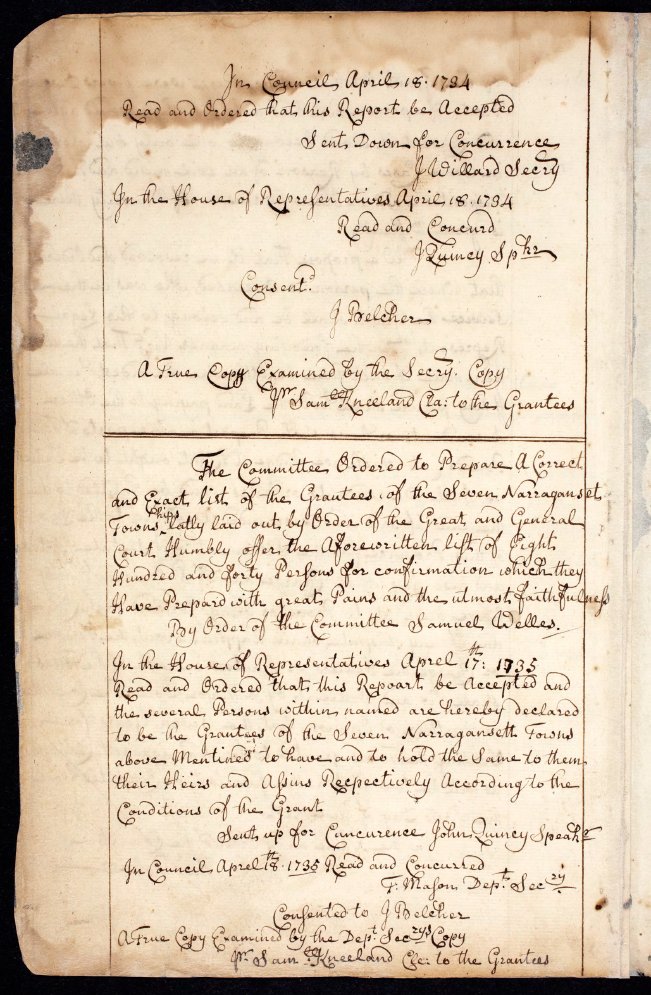 In Council April 18. 1734
Read and Ordered that this Report be Accepted
Sent Down for Concurrence
J Willard Secry
In the House of Representatives April 18. 1734
Read and Concurd
J Quincy Spkr
Consentd
J Belcher
A True Copy Examined by the Secry. Copy
Pr Samll Kneeland Cla: to the Grantees
The Committee Ordered to Prepare A Correct
and Exact list of the Grantees of the Seven Narraganset
Townships latly laid out by Order of the Great and General
Court Humbly offer the Aforewritten list of Eight
Hundred and forty Persons for confirmation which they
Have Prepard with great Pains and the utmost faithfulness
By Order of the Committee Samuel Welles.
In the House of Representatives Aprel 17th: 1735
Read and Ordered that this Repoart be Accepted and
the several Persons within named are hereby declared
to be the Grantees of the Seven Narraganseth Towns
above Mentined to have and to hold the Same to them
their Heirs and Assins Recpectively According to the
Conditions of the Grant
Sent up for Cuncurence John Quincy Speakr
In Council Aprel 18th. 1735 Read and Concurred
T: Mason Dept. Secry
Consented to J Belcher
A True Copy Examined by the Dept Secrys Copy
Pr. Samll Kneeland Cle: to the Grantees